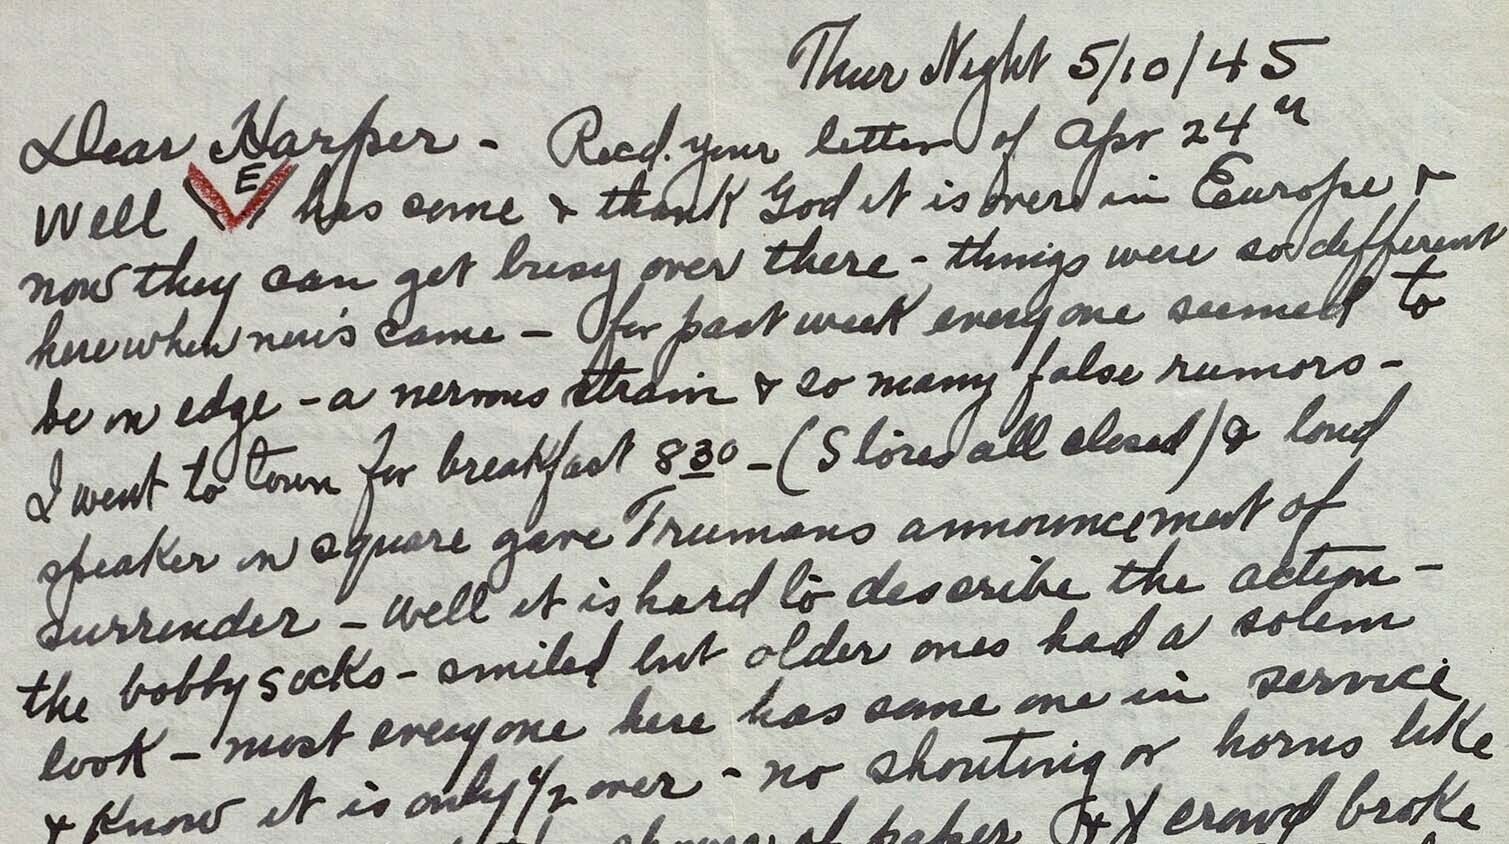 Thur Night 5/10/45
Dear Harper - Recd. your letter of Apr 24th
Well VE has come & thank God it is over in Europe &
now they can get busy over there - things were so different
here when news came - for past week everyone seemed to
be on edge - a nervous strain & so many false rumors -
I went to town for breakfast 830 - (Stores all closed) & loud
speaker on square gave Trumans announcement of
surrender - well it is hard to describe the action -
the bobby socks - smiled but older ones had a solem
look - most everyone here has some one in service
& know it is only 1/2 over - no shouting or horns like
of paper crowd broke